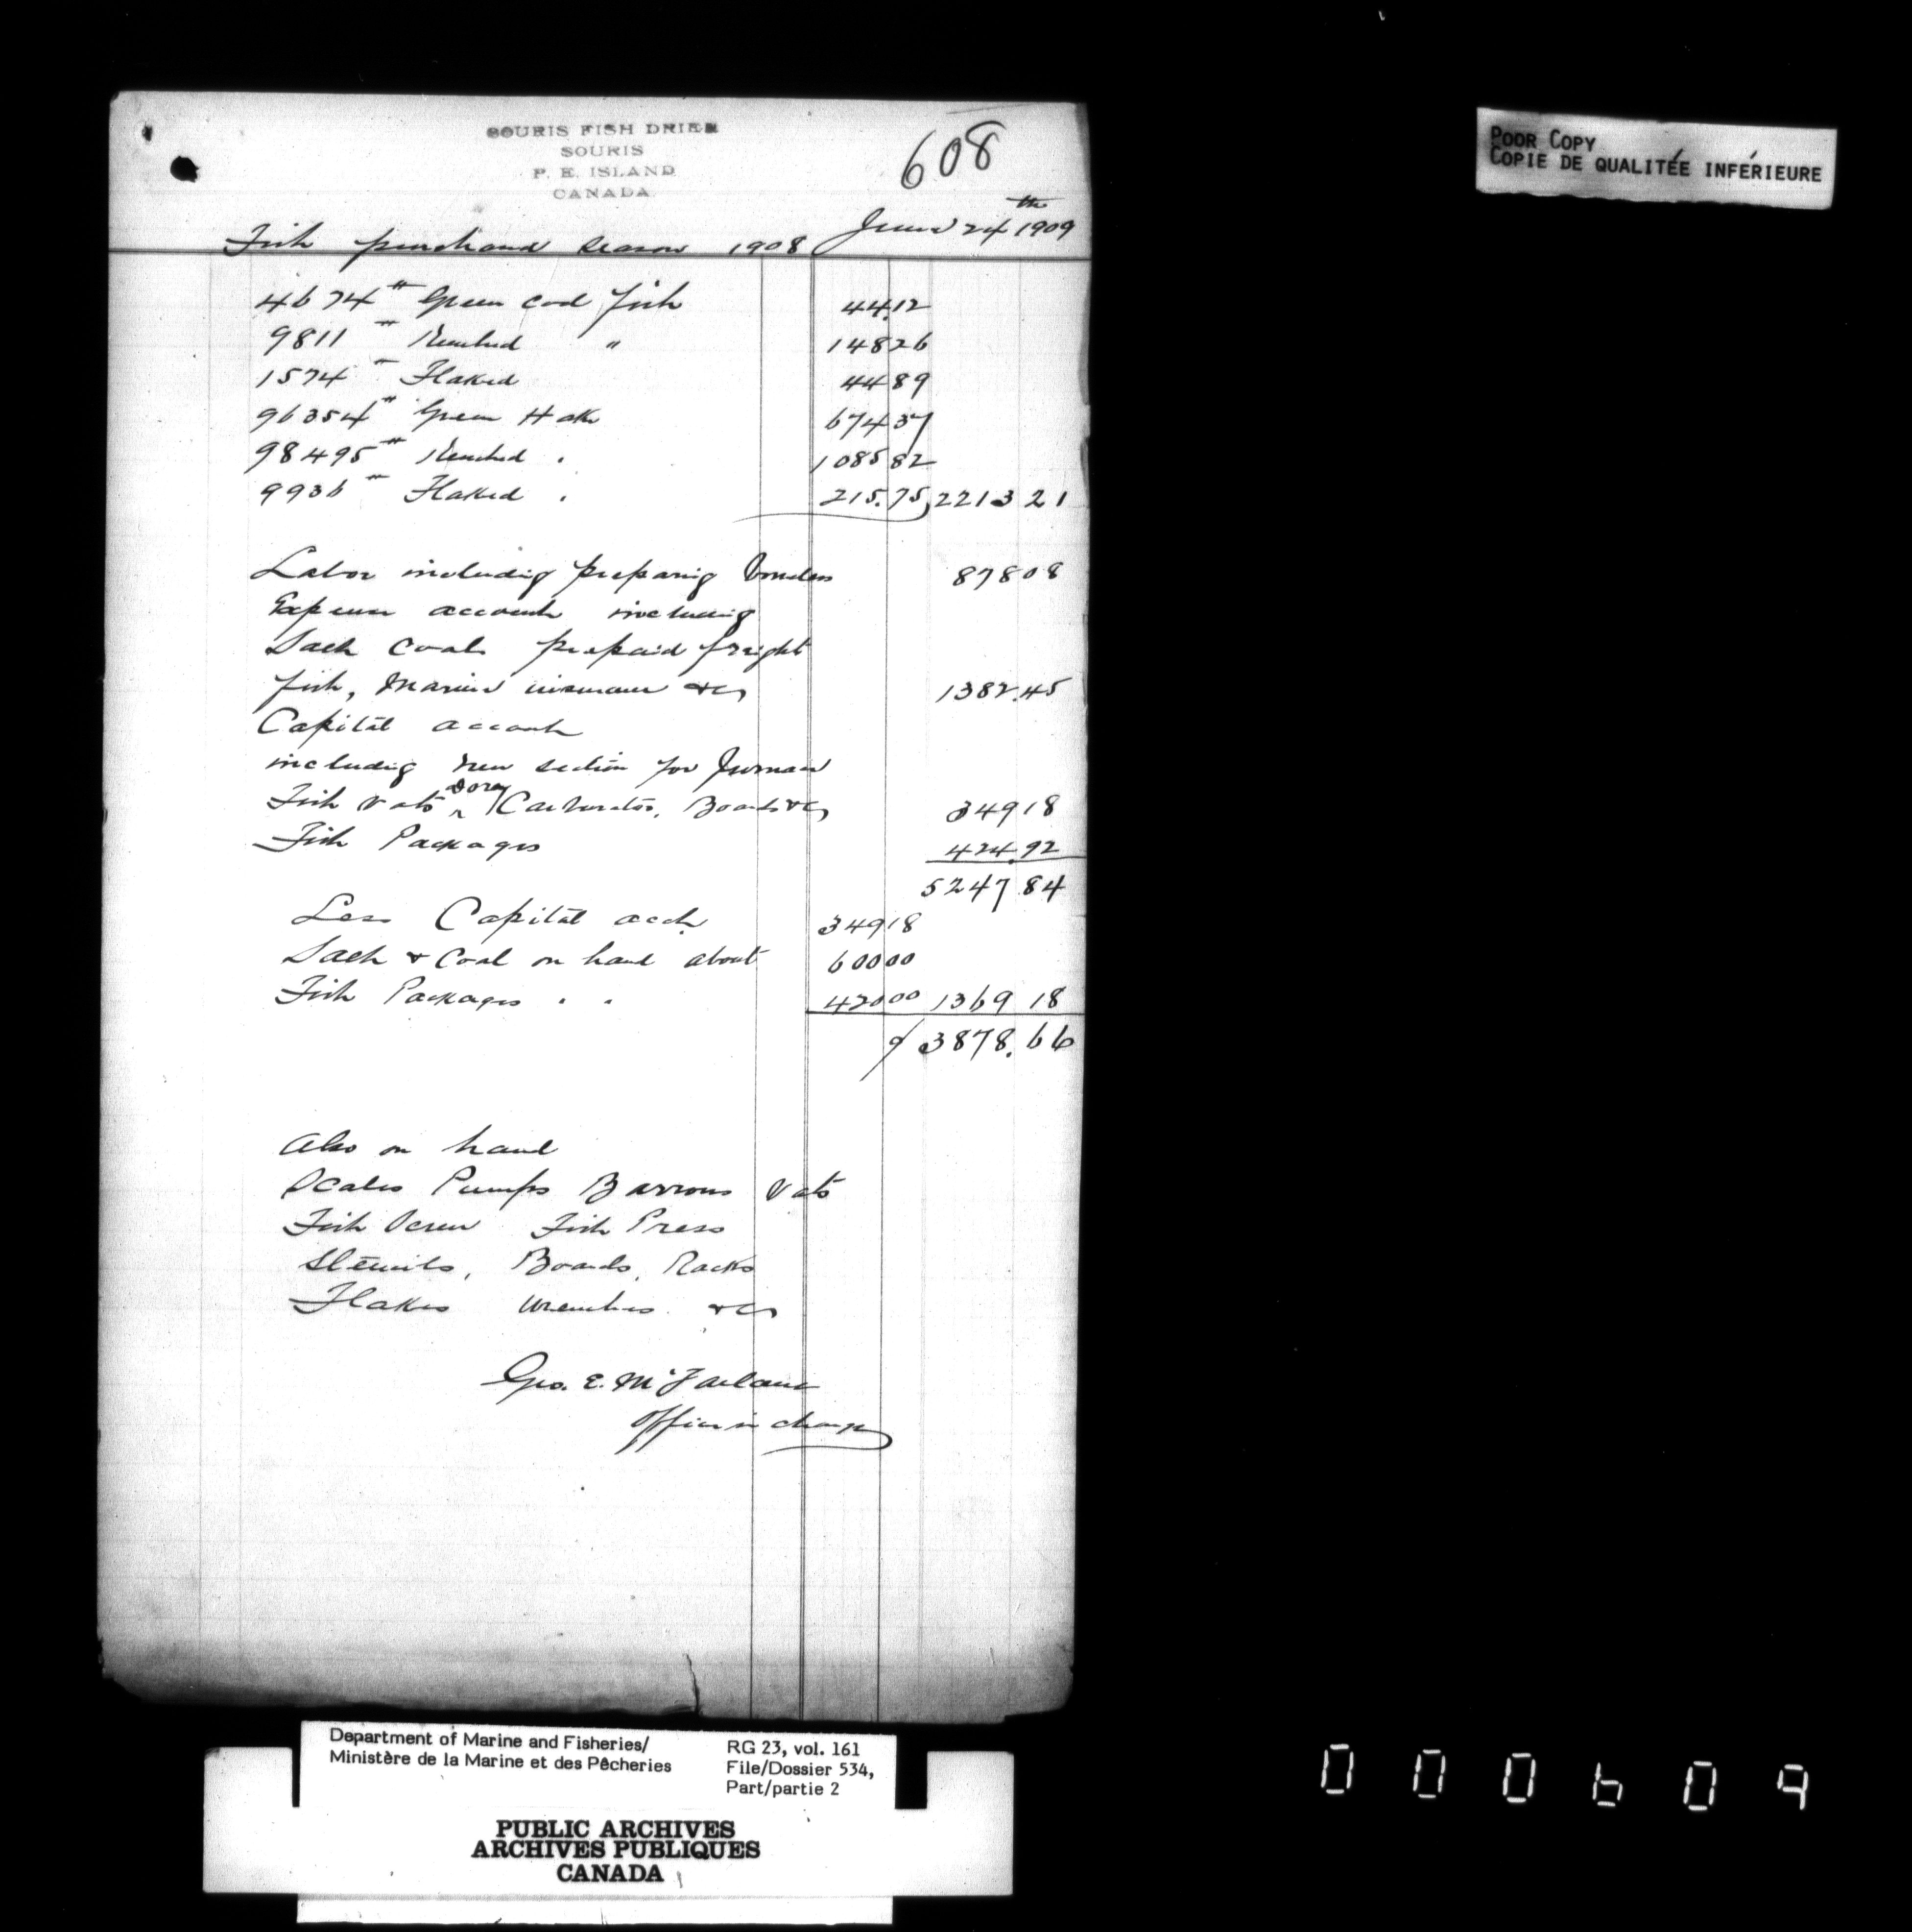 SOURIS FISH DRIER
SOURIS
P. E. ISLAND
CANADA
608
June 24th 1909
Fish purchased season 1908
4674 # Green Cod Fish 44.12
9811 # Kenched " 148 26
1574 " Flaked 44 89
96354 # Green Hake 674 37
98495 # Kenched . 1085 82
9936 # Flaked . 215.75 2213 21
Labor including preparing Boneless 878 08
Expense account including
Salt Coal prepaid freight
fish, Marine insurance &c 1382.45
Capital account
including new section for furnace
Fish Vats Dory Carburator, Boards &c 349 18
Fish Packages 424.92
5247 84
Less Capital acct. 349 18
Salt & Coal on hand about 600 00
Fish Packages " " 420 00 1369 18
$ 3878.66
Also on hand
Scales Pumps Barrows Vats
Fish Screw Fish Press
Stencils, Boards, Racks
Flakes Wrenches &c
Geo. E. McFarlane
Officer in charge
POOR COPY
COPIE DE QUALITÉE INFÉRIEURE
Department of Marine and Fisheries/
Ministère de la Marine et des Pêcheries
RG 23, vol. 161
File/Dossier 534,
Part/partie 2
PUBLIC ARCHIVES
ARCHIVES PUBLIQUES
CANADA
000609